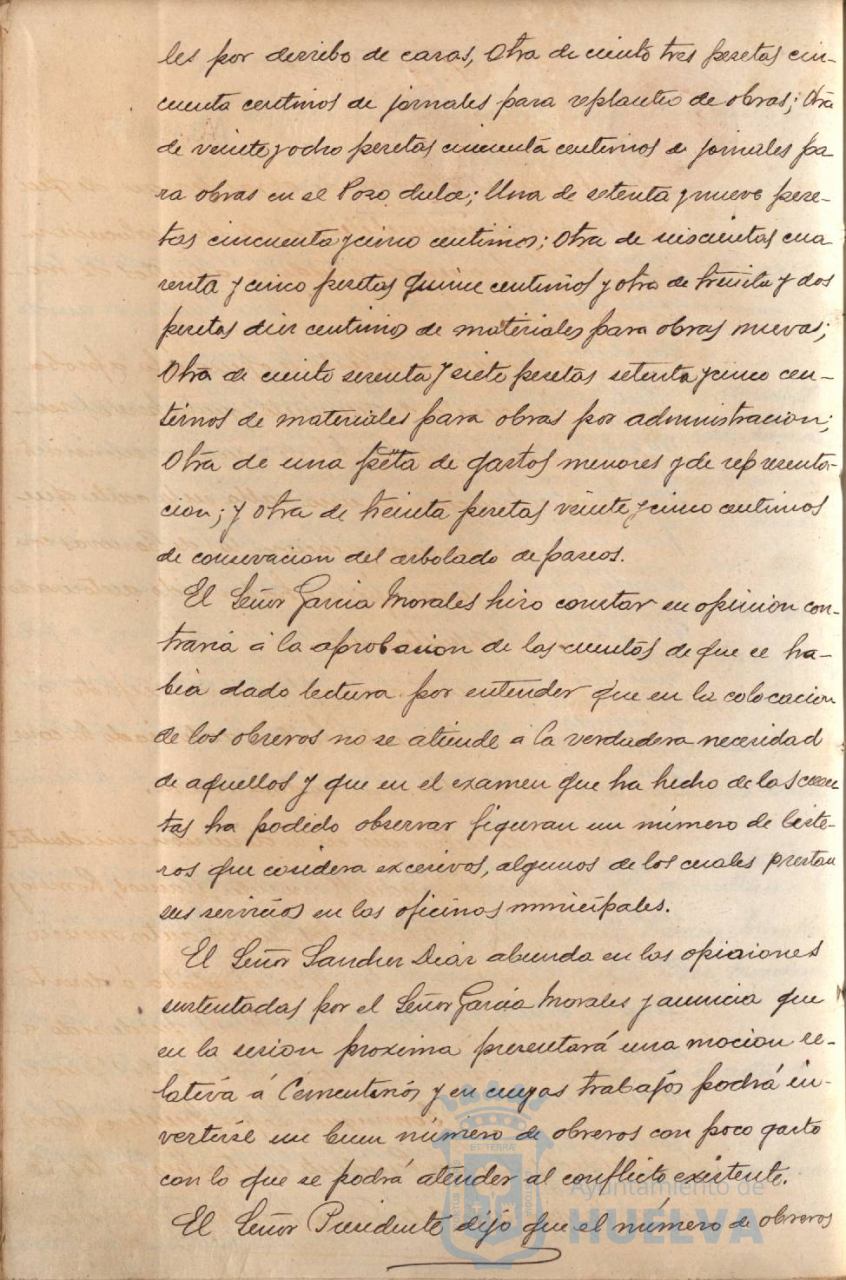 les por derribo de casas, Otra de ciento tres pesetas cin-
cuenta centimos de jornales para replanteo de obras; Otra
de veinte y ocho pesetas cincuenta centimos de jornales pa
ra obras en el Pozo dulce; Una de setenta y nueve pese-
tas cincuenta y cinco centimos; Otra de seiscientas cua
renta y cinco pesetas quince centimos y otra de treinta y dos
pesetas diez centimos de materiales para obras nuevas;
Otra de ciento sesenta y siete pesetas setenta y cinco cen-
timos de materiales para obras por administracion;
Otra de una peta de gastos menores y de representa-
cion; y otra de treinta pesetas veinte y cinco centimos
de conservacion del arbolado de paseos.
El Señor Garcia Morales hizo constar su opinion con-
traria á la aprobacion de las cuentas de que se ha-
bia dado lectura por entender que en la colocacion
de los obreros no se atiende á la verdadera necesidad
de aquellos y que en el examen que ha hecho de las cuen
tas ha podido observar figuran un número de liste-
ros que cosidera excesivos, algunos de los cuales prestan
sus servicios en las oficinas municipales.
El Señor Sanchez Diaz abunda en las opiniones
sustentadas por el Señor Garcia Morales y anuncia que
en la sesion proxima presentará una mocion re-
lativa á Cementerios y en cuyos trabajos podrá in-
vertirse un buen número de obreros con poco gasto
con lo que se podrá atender al conflicto existente.
El Señor Presidente dijo que el número de obreros
Ayuntamiento de
HUELVA